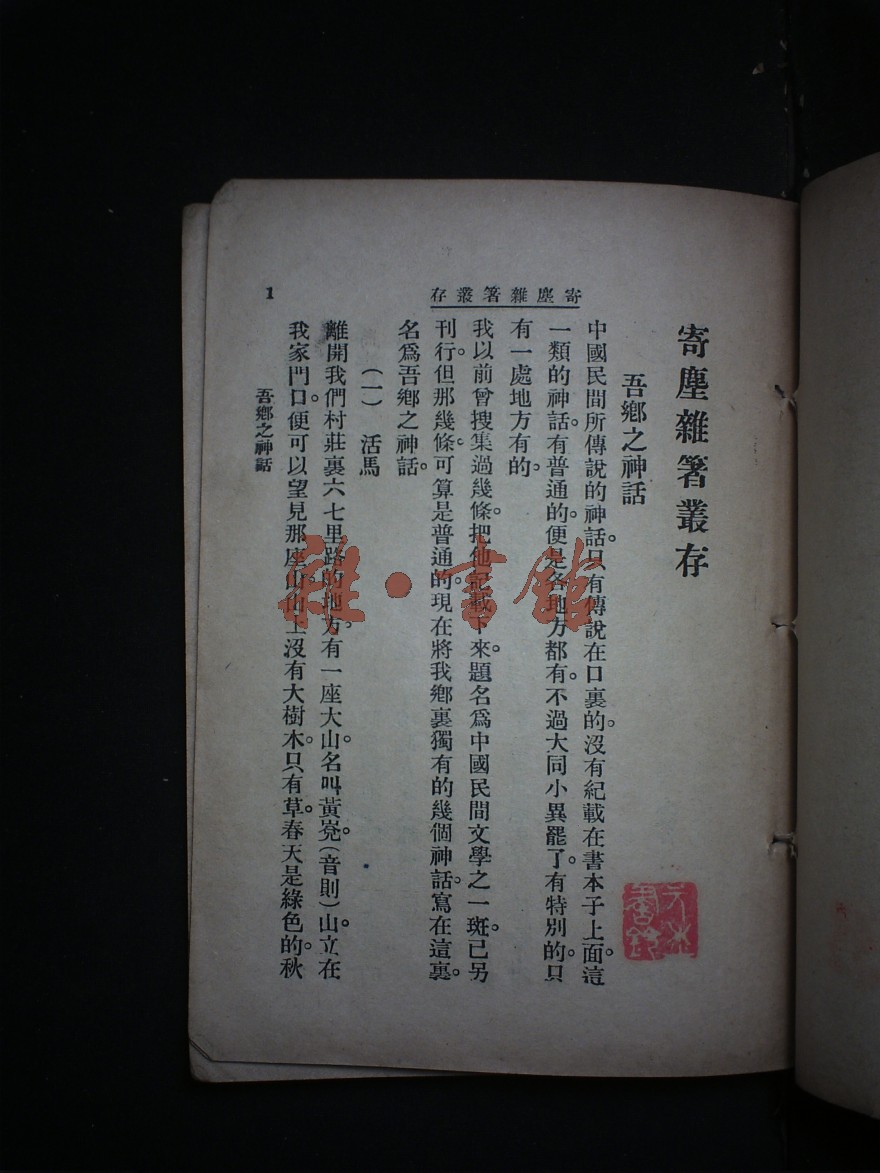 寄塵雜箸叢存
寄塵雜箸叢存
吾鄉之神話
中國民間所傳說的神話。只有傳說在口裏的。沒有紀載在書本子上面。這
一類的神話。有普通的。便是各地方都有。不過大同小異罷了。有特別的。只
有一處地方有的。
我以前曾搜集過幾條。把他記載下來。題名爲中國民間文學之一斑。已另
刊行。但那幾條。可算是普通的。現在將我鄉裏獨有的幾個神話。寫在這裏。
名爲吾鄉之神話。
(一) 活馬
離開我們村莊裏六七里路的地方。有一座大山。名叫黃㟙。(音則)山立在
我家門口。便可以望見那座山。山上沒有大樹木。只有草。春天是綠色的。秋
吾鄉之神話
1
雜·書館